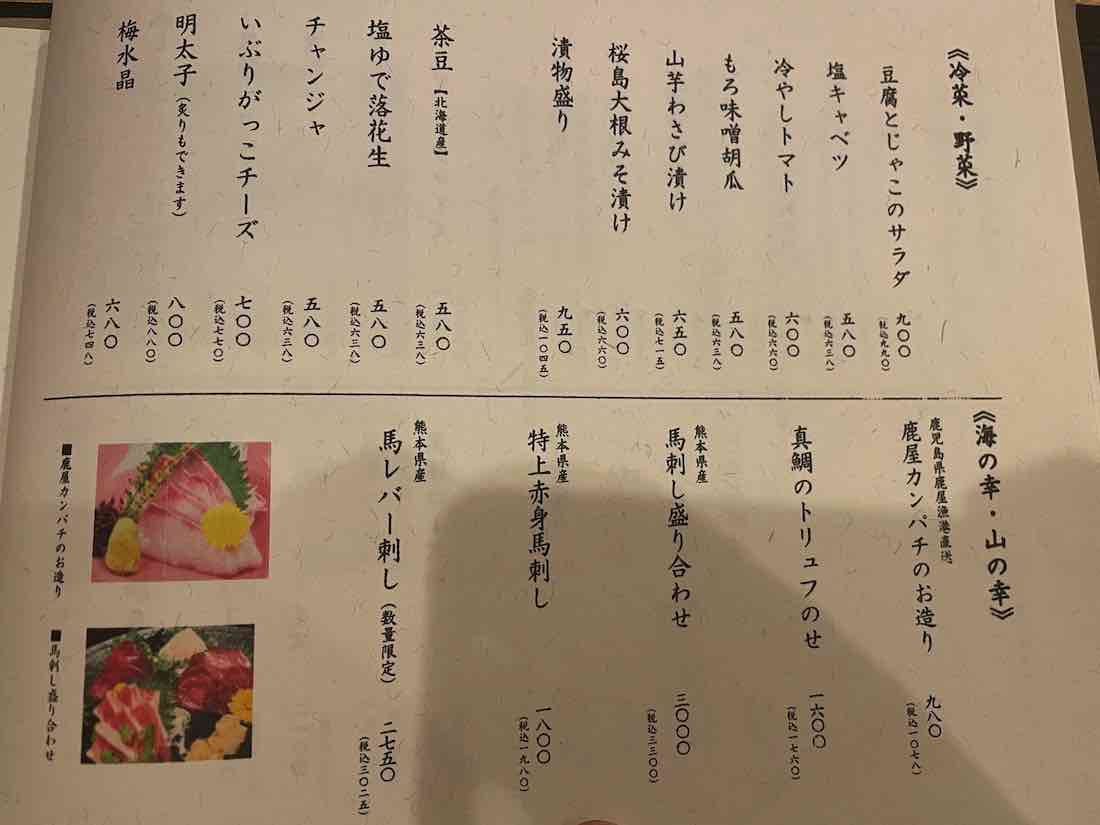 《冷菜・野菜》
豆腐とじゃこのサラダ
九〇〇
(税込九九〇)
塩キャベツ
五八〇
(税込六三八)
冷やしトマト
六〇〇
(税込六六〇)
もろ味噌胡瓜
五八〇
(税込六三八)
山芋わさび漬け
六五〇
(税込七一五)
桜島大根みそ漬け
六〇〇
(税込六六〇)
漬物盛り
九五〇
(税込一〇四五)
茶豆【北海道産】
五八〇
(税込六三八)
塩ゆで落花生
五八〇
(税込六三八)
チャンジャ
五八〇
(税込六三八)
いぶりがっこチーズ
七〇〇
(税込七七〇)
明太子(炙りもできます)
八〇〇
(税込八八〇)
梅水晶
六八〇
(税込七四八)
《海の幸・山の幸》
鹿児島県鹿屋漁港直送
鹿屋カンパチのお造り
九八〇
(税込一〇七八)
真鯛のトリュフのせ
一六〇〇
(税込一七六〇)
熊本県産
馬刺し盛り合わせ
三〇〇〇
(税込三三〇〇)
熊本県産
特上赤身馬刺し
一八〇〇
(税込一九八〇)
熊本県産
馬レバー刺し(数量限定)
二七五〇
(税込三〇二五)
■鹿屋カンパチのお造り
■馬刺し盛り合わせ